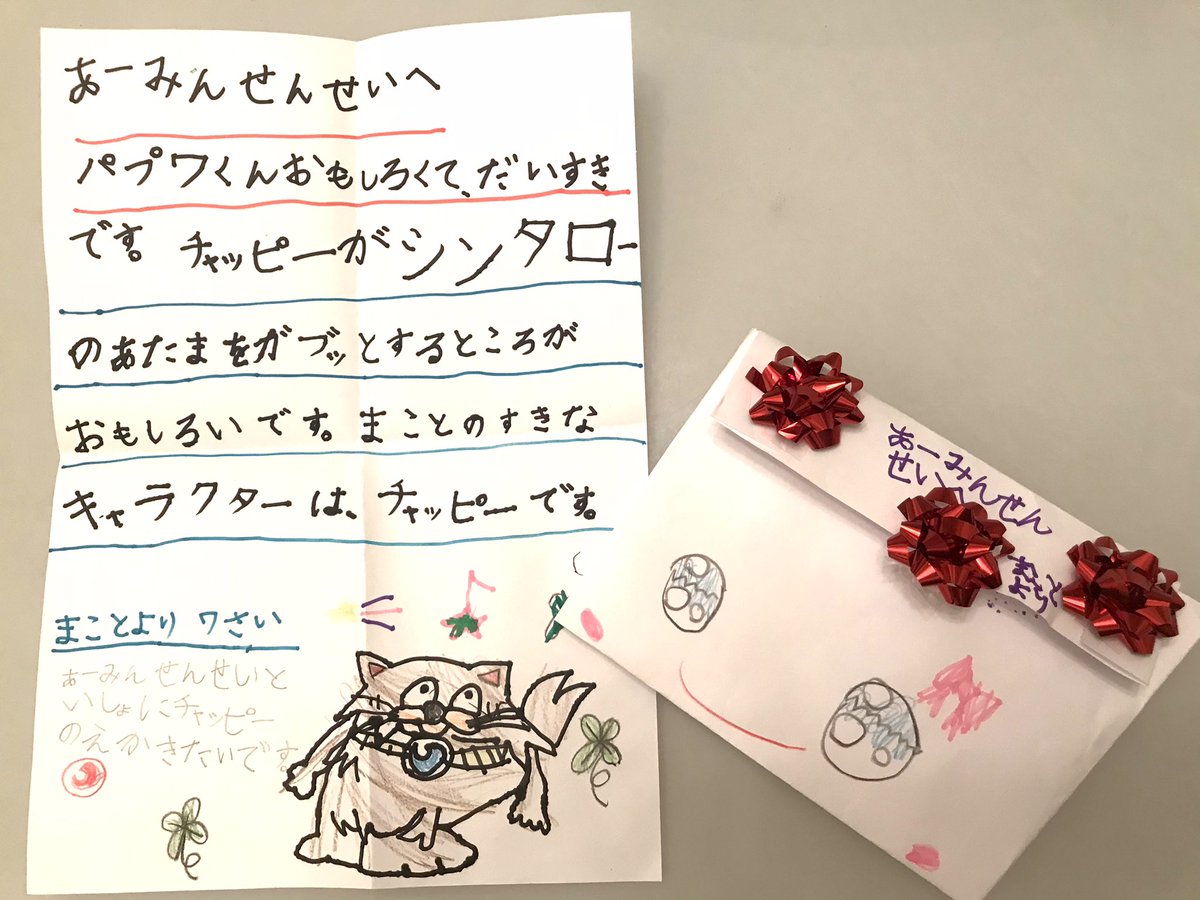 あーみんせんせいへ
パプワくんおもしろくて、だいすき
です。チャッピーがシンタロー
のあたまをガブッとするところが
おもしろいです。まことのすきな
キャラクターは、チャッピーです。
まことより 7さい
あーみんせんせいと
いしょにチャッピー
のえかきたいです。
あーみんせん
せいへ
まこと
より